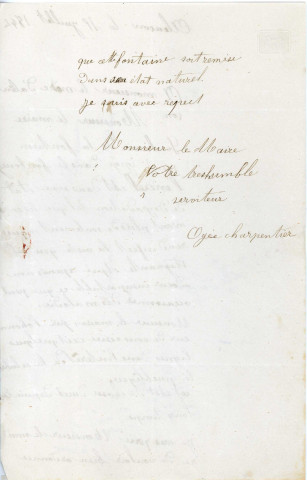 que cette fontaine soit remise
dans son état naturel.
je suis avec respect
Monsieur le Maire
Votre tres humble
serviteur
charpentier